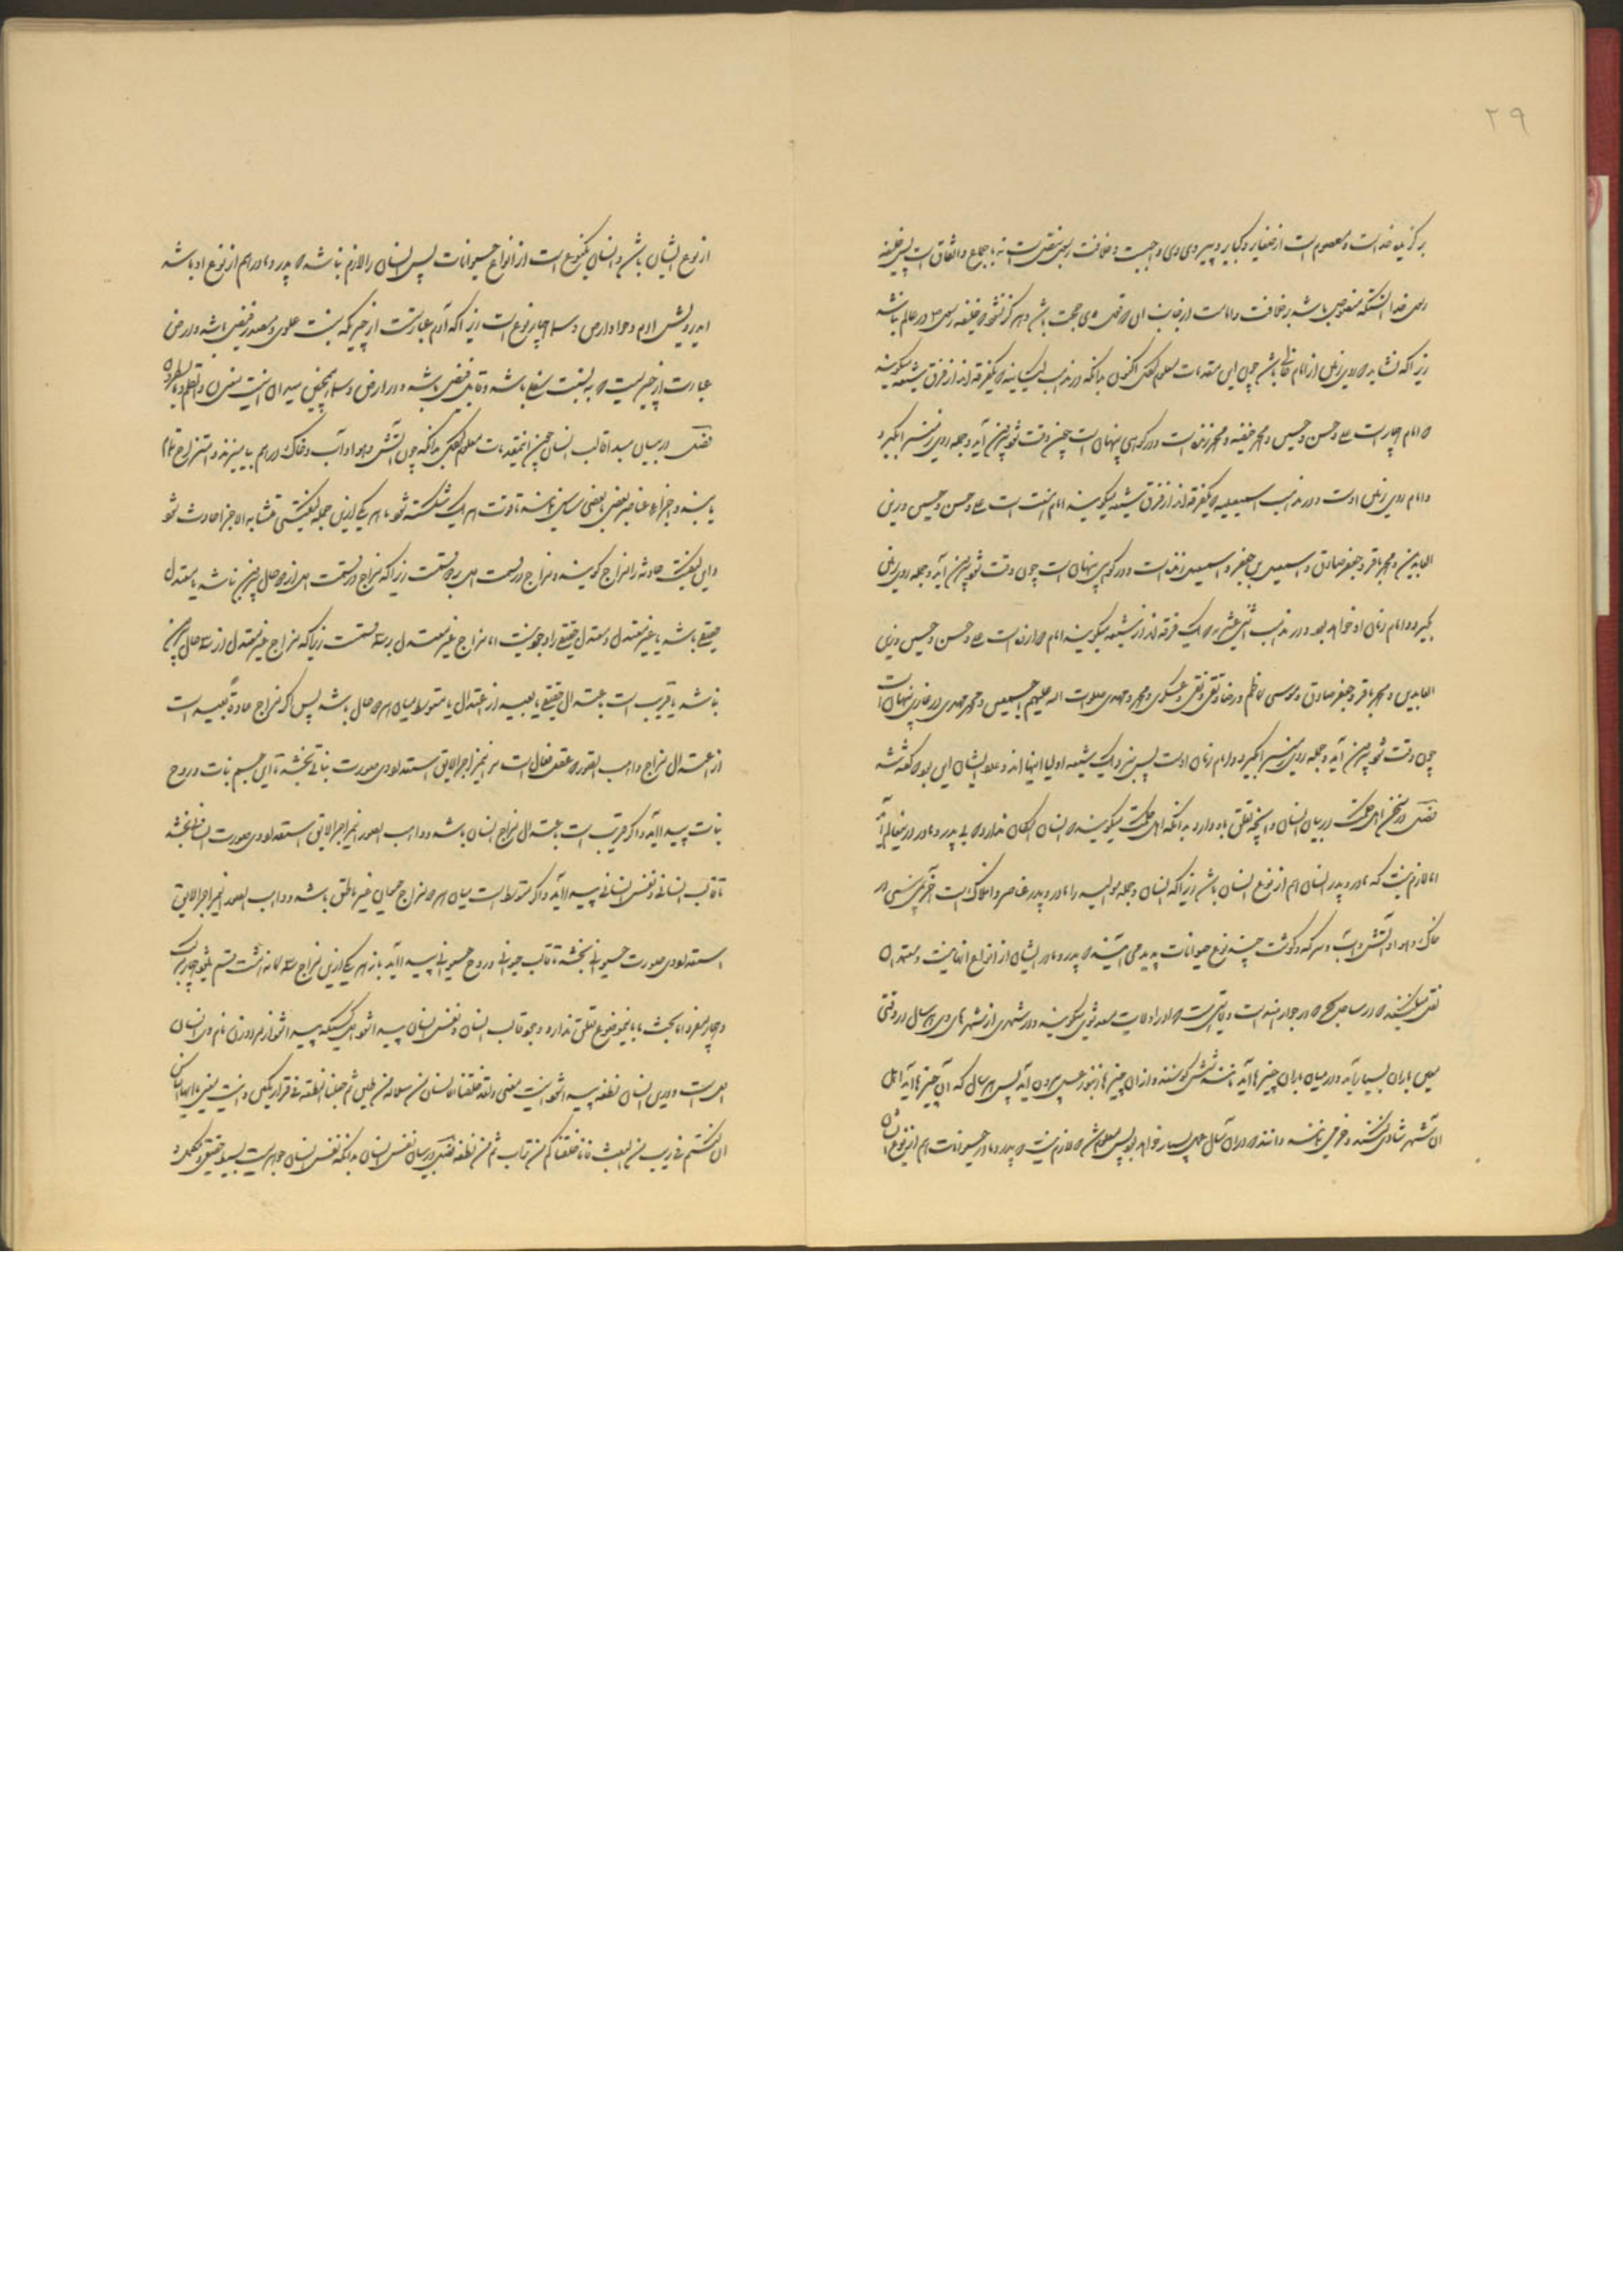 ۲۹
برگزیده خداست و معصوم است از صغایر و کبایر و پیروی وی واجبست و خلافت بنص است نه باجماع و اتفاق است پس خلیفه
رسول خدا آنستکه منصوص باشد بر خلافت و امامت از جانب قول وی حجت باشد و هرگز نشود که خلیفه رسول در عالم نباشد
زیرا که نشاید که روی زمین از امام خالی باشد چون این مقدمات معلوم کردی اکنون بدانکه در مذهب کیسانیه که یکفرقه‌اند از فرق شیعه میگویند
که امام چهار است علی و حسن و حسین و محمد حنفیه و محمد زنده است و در کوهی پنهان است چون وقت شود بیرون آید و جمله روی زمین را بگیرد
و امام روی زمین اوست و در مذهب اسمعیلیه که یکفرقه‌اند از فرق شیعه میگویند امام هفت است علی و حسن و حسین و زین
العابدین و محمد باقر و جعفر صادق و اسمعیل بن جعفر و اسمعیل زنده است و در کوهی پنهان است چون وقت شود بیرون آید و جمله روی زمین
بگیرد و امام زمان او خواهد بود و در مذهب اثنی عشریه که یک فرقه‌اند از شیعه میگویند امام دوازده است علی و حسن و حسین و زین
العابدین و محمد باقر و جعفر صادق و موسی کاظم و رضا و تقی و نقی و عسکری و محمد مهدی صلوات الله علیهم اجمعین و محمد مهدی در غاری پنهان است
چون وقت شود بیرون آید و جمله روی زمین را بگیرد و امام زمان اوست پس نزدیک شیعه اولیا اینها اند و علم ایشان این بود که گفته شد
فصل در سخن اهل حکمت در بیان انسان و آنچه تعلق باو دارد بدانکه اهل حکمت میگویند که انسان امکان ندارد که بی پدر و مادر در عالم آید
اما لازم نیست که مادر و پدر انسان هم از نوع انسان باشد زیرا که انسان و جمله موالید را مادر و پدر عناصر و افلاک است
خاک و هوا و آتش و آب و سرکه و گوشت چند نوع حیوانات پدید می‌آیند که پدر و مادر ایشان از انواع آنها نیست
نقل میکنند که در ساحل که در جوار هند است ولایتی است که او را ولایت میگویند و در شهری از شهرهای وی هر سال در وقتی
معین باران بسیار آید و در میان باران چیزها آید و از آن چیزها زنبور عسل بیرون آید پس هر سال که آن چیزها آید اهل
آن شهر شادی کنند و خرمی نمایند و دانند که در آن سال عسل بسیار خواهد بود پس معلوم شد که لازم نیست که پدر و مادر حیوانات هم از نوع
از نوع ایشان باشد و انسان یکنوع است از انواع حیوانات پس انسان را لازم نباشد که پدر و مادر هم از نوع او باشد
ایدرویش آدم و حوا و ارض و سما چهار نوع است زیرا که آدم عبارتست از چیزیکه بنسبت علوی و مصدر فیض باشد و ارض
عبارت از چیزیست که به نسبت سفلی باشد و قابل فیض باشد و در ارض و سما همچنین میدان
فصل در بیان مبدأ قالب انسان چون این مقدمات معلوم کردی بدانکه چون آتش و هوا و آب و خاک در هم بیامیزند و امتزاج تمام
یابند و اجزاء عناصر بعضی با بعضی مماس باشند تا قوت هر یک شکسته شود هر یکی ازین جمله کیفیتی متشابه الاجزا حادث شود
و این کیفیت حادثه را مزاج گویند و مزاج در قسمت اول بر دو قسمت زیرا که مزاج در قسمت اول از دو حال بیرون نباشد یا معتدل
حقیقی باشد یا غیر معتدل و معتدل حقیقی را وجود نیست اما مزاج غیر معتدل بر سه قسمت زیرا که مزاج غیر معتدل از سه حال بیرون
نباشد یا قریب است باعتدال حقیقی یا بعید از اعتدال یا متوسط میان هر دو حال باشد پس اگر مزاج حادث بعید است
از اعتدال مزاج واهب الصور که عقل فعال است مر این مزاج را لایق استعداد وی صورت نباتی بخشد تا این جسم نبات و روح
نبات پیدا آید و اگر قریب است باعتدال مزاج انسان باشد و واهب الصور این مزاج را لایق استعداد وی صورت انسان بخشد
تا قالب انسانی و نفس انسانی پیدا آید و اگر متوسط است میان هر دو مزاج حیوان غیر ناطق باشد و واهب الصور این مزاج را لایق
استعداد وی صورت حیوانی بخشد تا قالب حیوانی و روح حیوانی پیدا آید باز هر یکی ازین مزاج سه گانه هشت قسم میشود چهار مرکب
و چهار مفرد اما بحث ما باینموضوع تعلق ندارد و چون قالب انسان و نفس انسان پیدا شود
اول است و درین انسان نطفه پیدا شود اینست معنی ولقد خلقنا الانسان من سلالة من طین ثم جعلناه نطفة فی قرار مکین و اینست معنی یا ایها الناس
ان کنتم فی ریب من البعث فانا خلقناکم من تراب ثم من نطفة فصل در بیان نفس انسان بدانکه نفس انسان جوهریست بسیط حقیقی